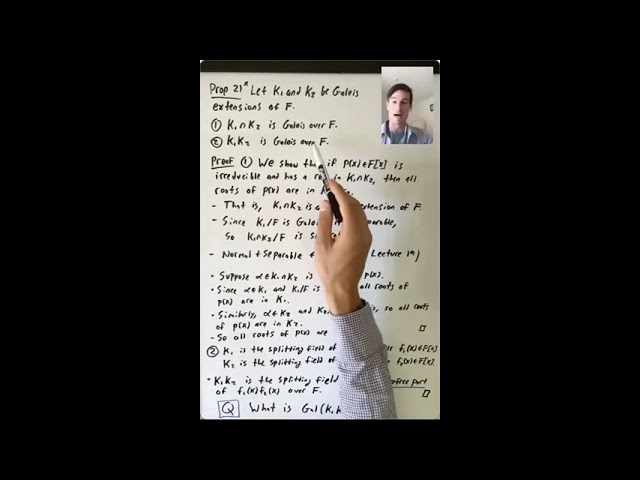 Prop 21* Let K₁ and K₂ be Galois
extensions of F.
① K₁∩K₂ is Galois over F.
② K₁K₂ is Galois over F.
Proof ① We show if p(x)∈F[x] is
irreducible and has a in K₁∩K₂, then all
roots of p(x) are in
- That is, K₁∩K₂ is extension of F.
- Since K₁/F is Galois
so K₁∩K₂/F is
- Normal + Separable Lecture 1*)
- Suppose α∈K₁∩K₂ is p(x).
- Since α∈K₁ and K₁/F is all roots of
p(x) are in K₁.
- Similarly, α∈K₂ and so all roots
of p(x) are in K₂.
- So all roots of p(x) are □
② K₁ is the splitting field of f₁(x)∈F[x]
K₂ is the splitting field of f₂(x)∈F[x]
- K₁K₂ is the splitting field part
of f₁(x)f₂(x) over F. □
Q What is Gal(K₁K